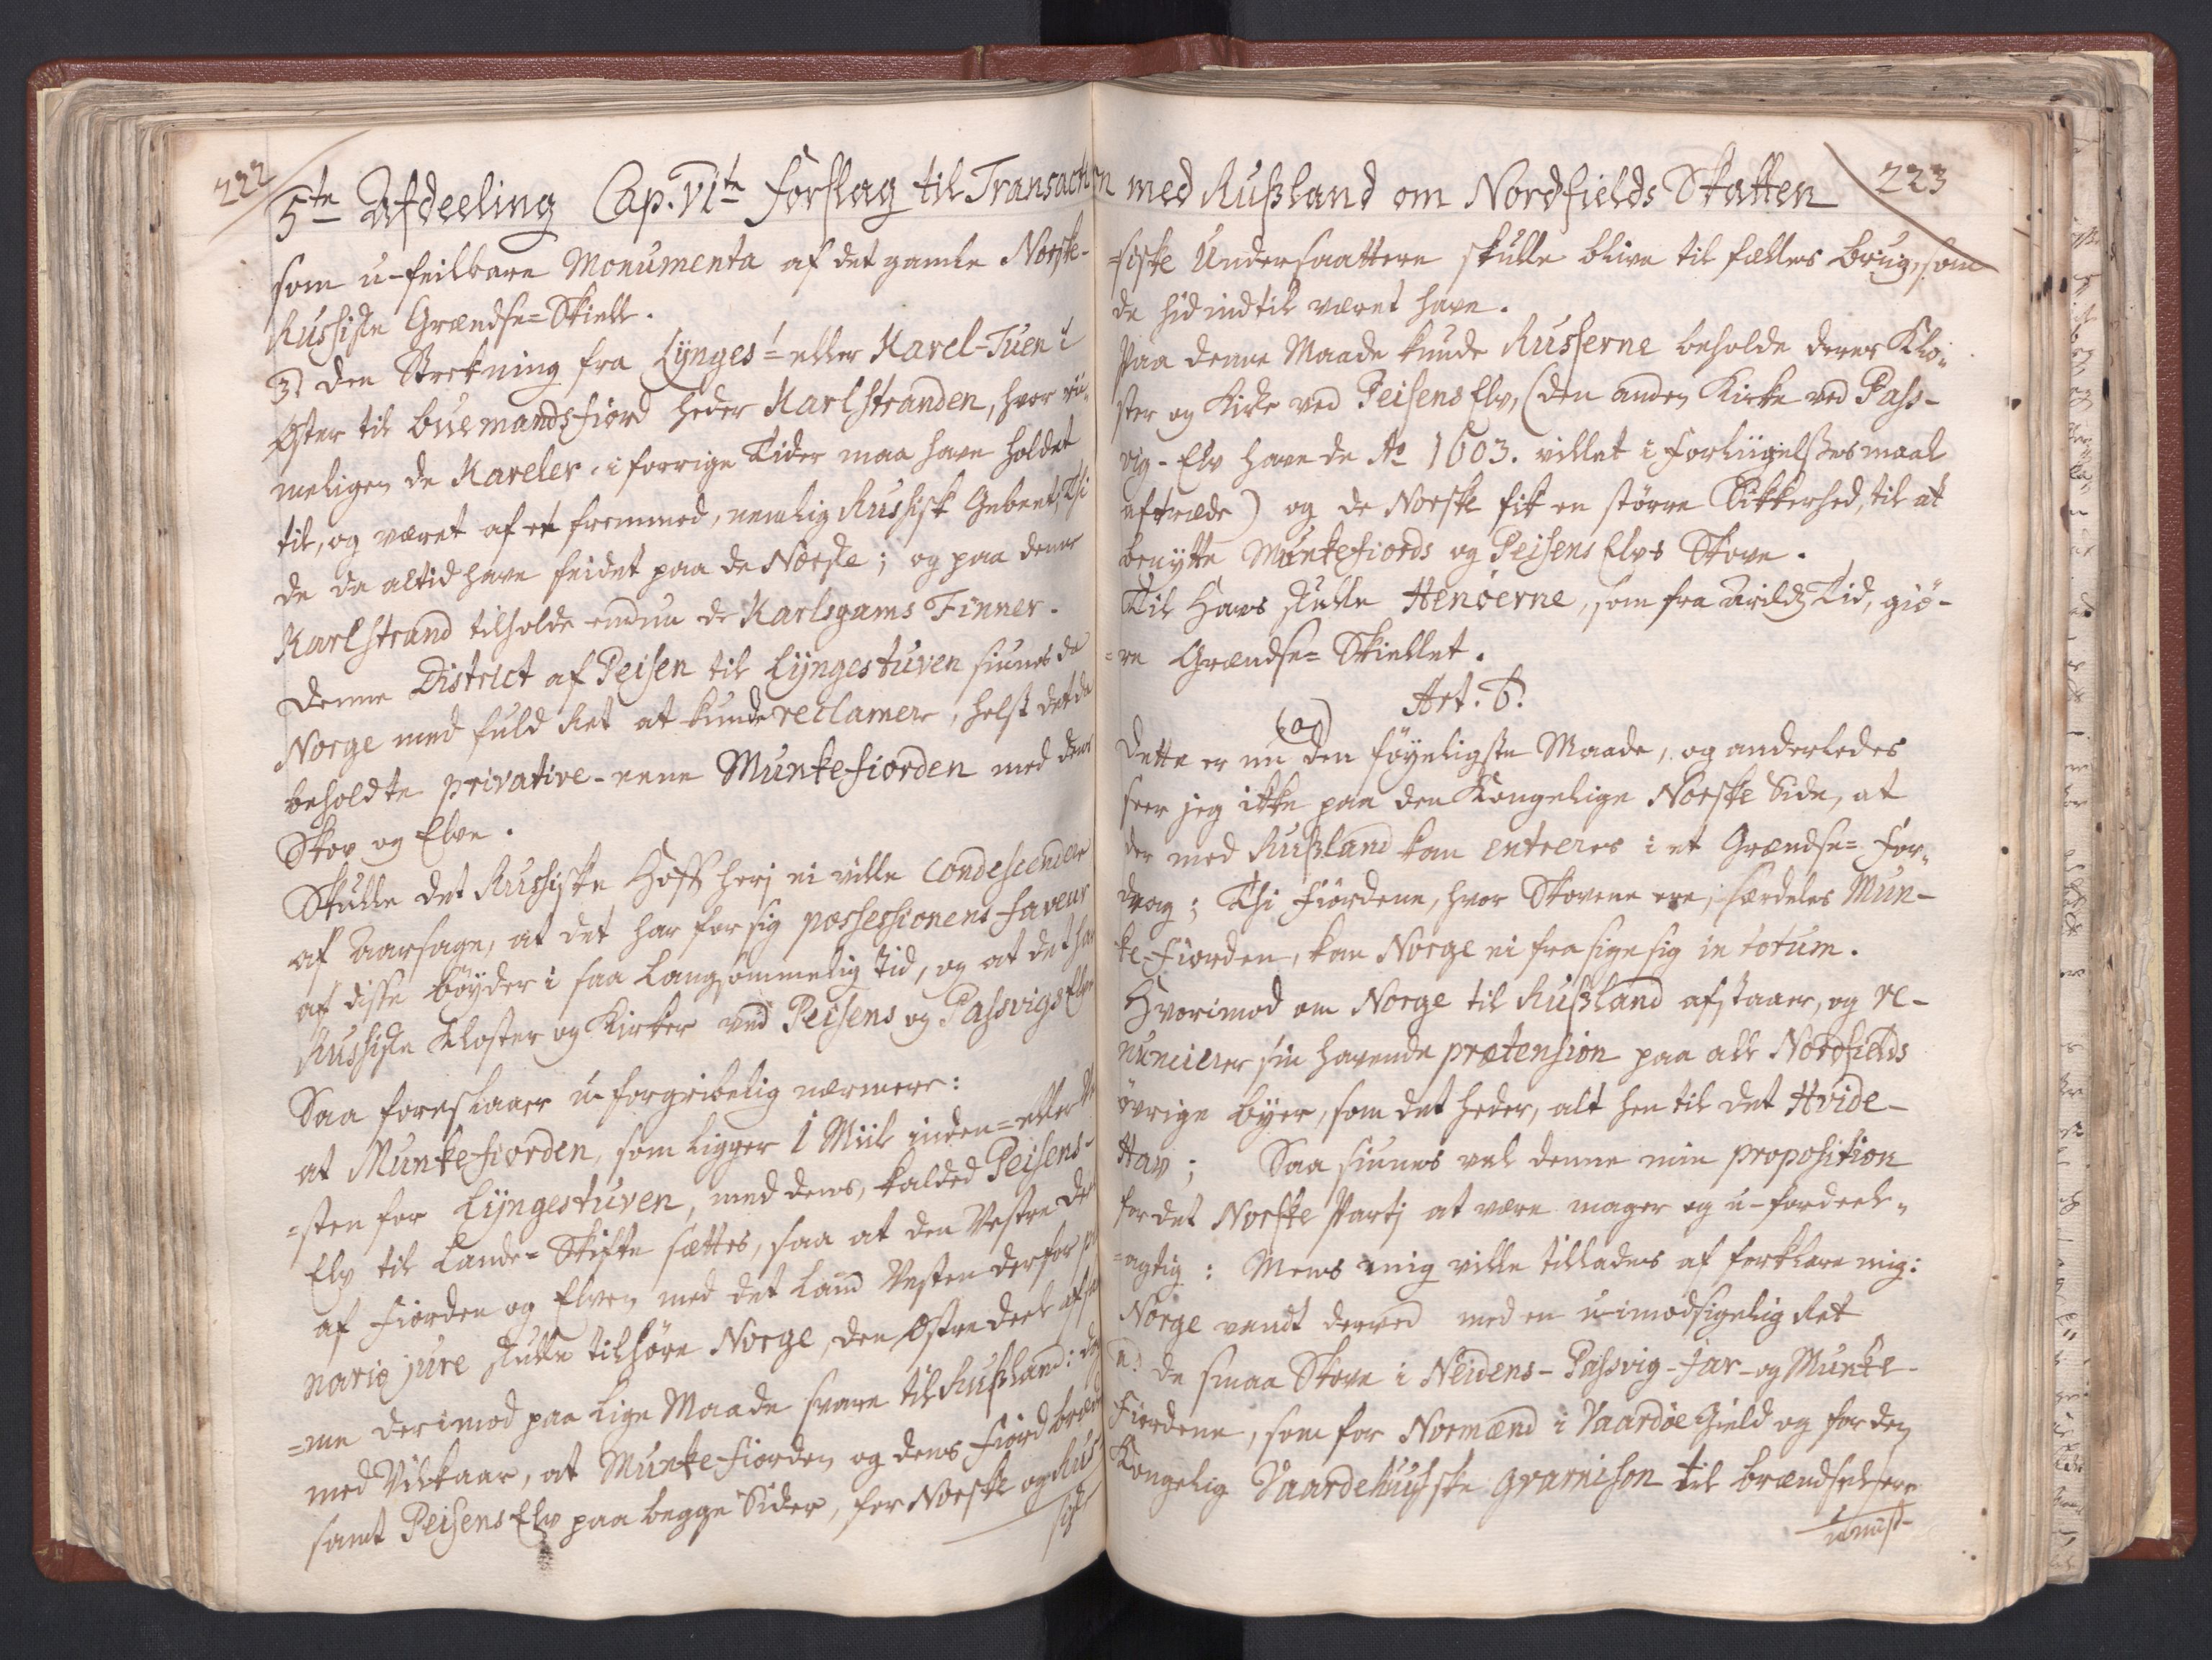 222
5te Afdeeling Cap. VIte Forslag til Transaction med Rusland om Nordfields Skatten
223
som u-feilbare Monumenta af det gamle Norsk-
Russiske Grændse-Skiell.
3.) Den Strekning fra Lynges- eller Karel-Tuen i
Øster til Buemandsfiord heder Karlstranden, hvor rü-
meligen de Kareler i forrige Tider maa have holdet
til, og været af et fremmed, nemlig Russisk Gebeet; Thi
de da altid have feidet paa de Norske; og paa denne
Karlstrand tilholde endnu de Karlsgams Finner.
Denne District af Peisen til Lyngestuven siunes da
Norge med fuld Ret at kunde reclamere, helst det da
beholdte privative-eene Munkefiorden med dens
Skov og Elve.
Skulle det Russiske Hoff herj ei ville condescendere
af Aarsage, at det har for sig possessionens faveur
af disse Bøyder i saa langsommelig Tid, og at det har
Russiske Kloster og Kirker ved Peisens og Passvigs Elve
Saa foreslaaes uforgribelig nærmere:
at Munkefiorden, som ligger 1 Miil inden- eller Ve-
-sten for Lyngestuven, med dens, kalded Peisens-
Elv til Lande-Skifte sættes, saa at den Vestre Deel
af Fiorden og Elven med det Land Vesten derfor ple-
nario jure skulle tilhøre Norge, den Østre Deel af sam-
-me derimod paa lige Maade svare til Rusland: dog
med Vilkaar, at Munkefiorden og dens Fiord bræd
samt Peisens Elv paa begge Sider, for Norske og Rus-
siske
-siske Undersaattere skulle blive til fælles Brug, som
de hidindtil været have.
Paa denne Maade kunde Russerne beholde deres Klo-
ster og Kirke ved Peisens Elv, (den anden Kirke ved Pass-
vig-Elv have de Ao 1603. villet i Forliigelsesmaal
aftræde) og de Norske fik en större Sikkerhed, til at
benytte Munkefiords og Peisens Elvs Skove.
Til Havs skulle Henöerne, som fra Arilds Tid, giö-
-re Grændse-Skiellet.
Art. 6.
(a)
Dette er nu den föyeligste Maade, og anderledes
seer jeg ikke paa den Kongelige Norske Side, at
der med Rusland kan entreres i et Grændse-For-
drag; Thi Fiordene, hvor Skovene ere, særdeles Mun-
ke-Fiorden, kan Norge ei frasige sig in totum.
Hvorimod om Norge til Rusland afstaaer, og re-
nuncierer sin havende prætension paa alle Nordfields
övrige Byer, som det heder, alt hen til det Hvide-
Hav; Saa siunes vel denne min proposition
for det Norske Partj at være mager og u-fordeel-
-agtig: Mens mig ville tillades af forklare mig:
Norge vandt derved med en u-imodsigelig Ret
a.) De smaa Skove i Neidens- Passvig- Jar- og Munke-
Fiordene, som for Normænd i Vaardöe Gield og for den
Kongelig Vaardehuusske guarnison til Brændsel ere
umist-